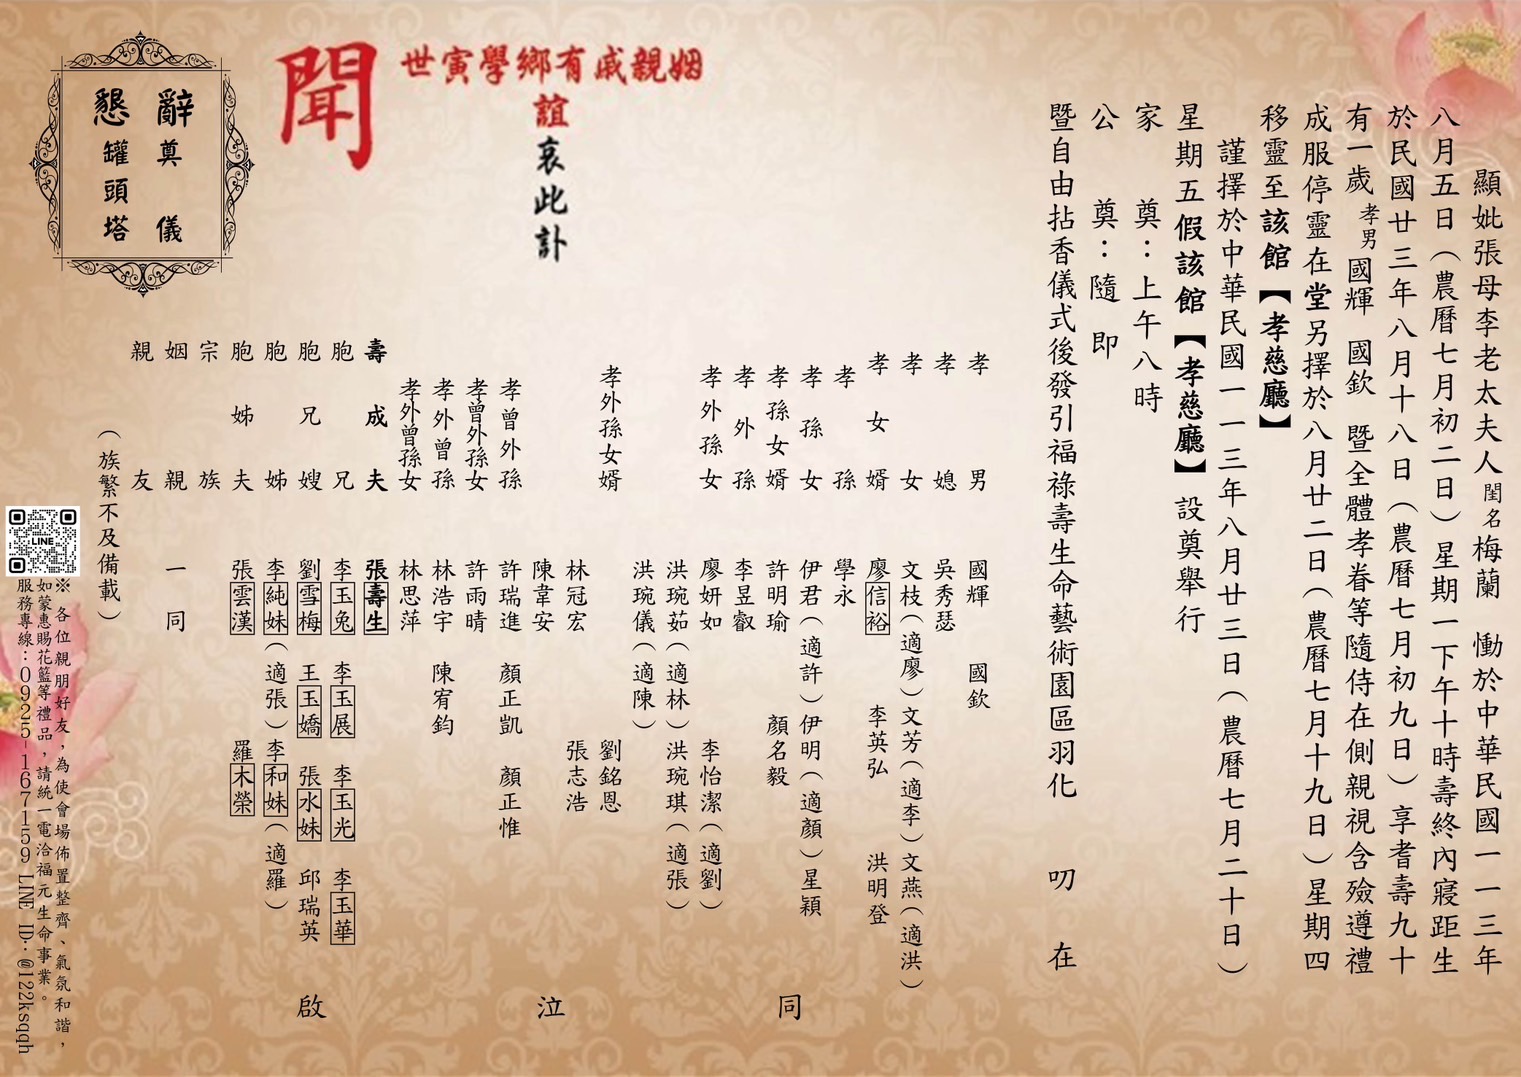 顯妣張母李老太夫人閨名梅蘭 慟於中華民國一一三年
八月五日（農曆七月初二日）星期一下午十時壽終內寢距生
於民國廿三年八月十八日（農曆七月初九日）享耆壽九十
有一歲孝男國輝 國欽 暨全體孝眷等隨侍在側親視含殮遵禮
成服停靈在堂另擇於八月廿二日（農曆七月十九日）星期四
移靈至該館【孝慈廳】
謹擇於中華民國一一三年八月廿三日（農曆七月二十日）
星期五假該館【孝慈廳】設奠舉行
家 奠：上午八時
公 奠：隨 即
暨自由拈香儀式後發引福祿壽生命藝術園區羽化 叨 在
姻親戚有鄉學寅世
誼哀此訃
聞
辭奠 儀
懇罐頭塔
孝男 國輝 國欽
孝媳 吳秀瑟
孝女 文枝（適廖）文芳（適李）文燕（適洪）
孝女婿 廖信裕 李英弘 洪明登
孝孫 學永
孝孫女 伊君（適許）伊明（適顏）星穎
孝孫女婿 許明瑜 顏名毅
孝外孫 李昱叡
孝外孫女 廖妍如 李怡潔（適劉）
洪琬茹（適林）洪琬琪（適張）
洪琬儀（適陳）
孝外孫女婿 劉銘恩
林冠宏 張志浩
陳韋安
孝曾外孫 許瑞進 顏正凱 顏正惟
孝曾外孫女 許雨晴
孝外曾孫 林浩宇 陳宥鈞
孝外曾孫女 林思萍
壽成夫 張壽生
胞兄 李玉兔 李玉展 李玉光 李玉華
胞兄嫂 劉雪梅 王玉嬌 張水妹 邱瑞英
胞姊 李純妹（適張）李和妹（適羅）
胞姊夫 張雲漢 羅木榮
宗族
姻親 一同
親友
（族繁不及備載）
同 泣 啟
※ 各位親朋好友，為使會場佈置整齊、氣氛和諧，
如蒙惠賜花籃等禮品，請統一電洽福元生命事業。
服務專線：0925-167159 LINE ID：@122ksqqh
LINE